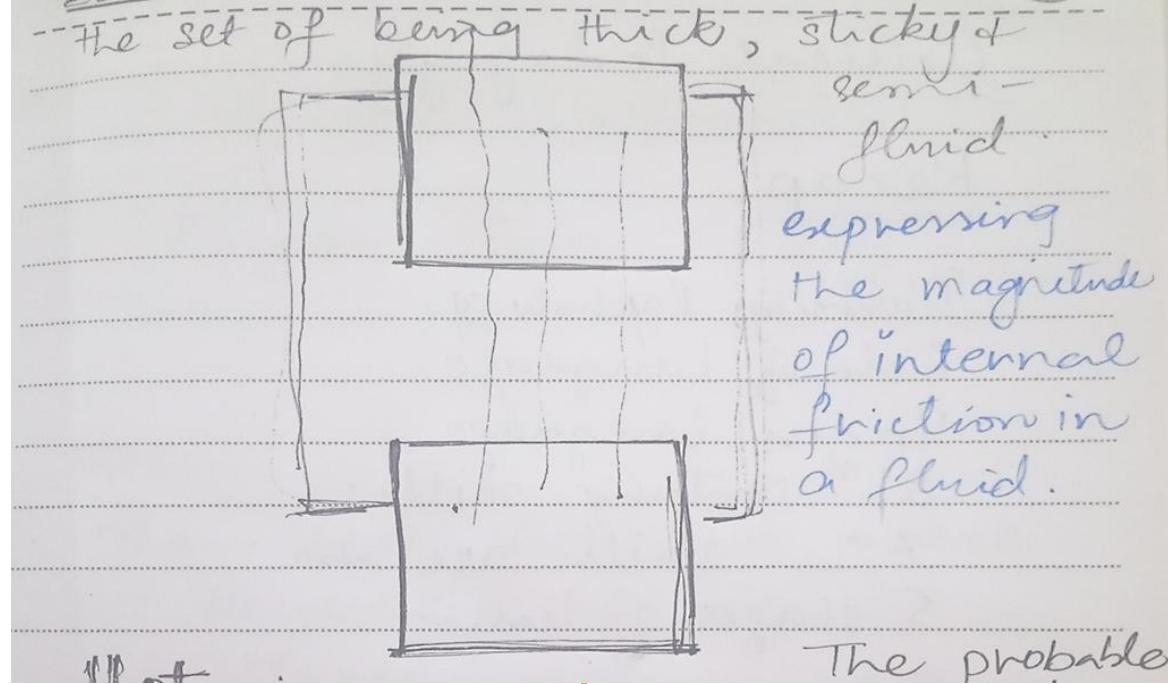 The set of being thick, sticky &
semi-
fluid.
expressing
the magnitude
of internal
friction in
a fluid.
The probable